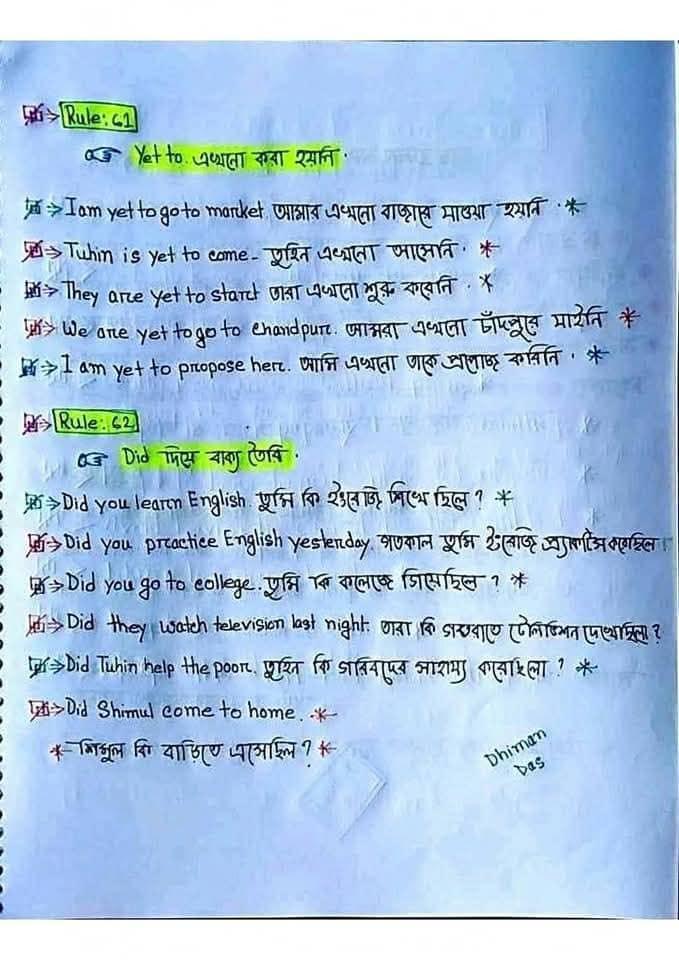 Rule: 61
Yet to. এখনো করা হয়নি.
I am yet to go to market. আমার এখনো বাজারে যাওয়া হয়নি.
Tuhin is yet to come- তুহিন এখনো আসেনি.
They are yet to start তারা এখনো শুরু করেনি.
We are yet to go to chandpur. আমরা এখনো চাঁদপুরে যাইনি
I am yet to propose her. আমি এখনো তাকে প্রপোজ করিনি.
Rule: 62
Did দিয়ে বাক্য তৈরি.
Did you learn English. তুমি কি ইংরেজি শিখেছিলে?
Did you practice English yesterday. গতকাল তুমি ইংরেজি প্র্যাকটিস করেছিলে
Did you go to college. তুমি কি কলেজে গিয়েছিলে?
Did they watch television last night. তারা কি গতরাতে টেলিভিশন দেখেছিলো?
Did Tuhin help the poor. তুহিন কি গরিবদের সাহায্য করেছিলো?
Did Shimul come to home.
শিমুল কি বাড়িতে এসেছিল?
Dhiman
Das